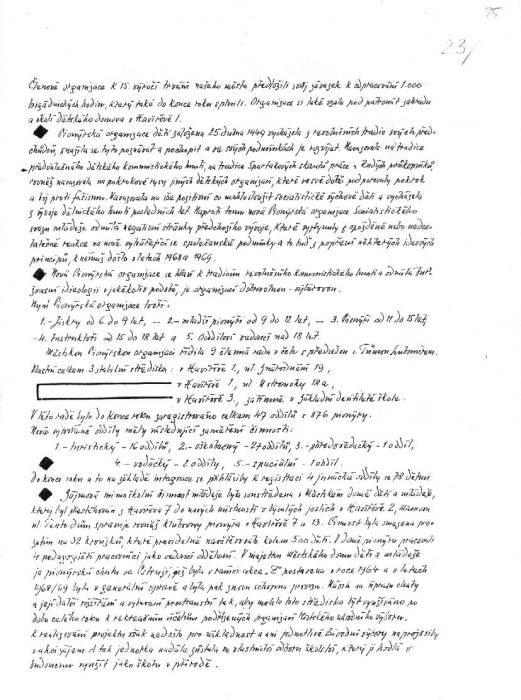 75
23/
Členové organizace k 15. výročí trvání našeho města předložili svůj závazek k odpracování 1.000
brigádnických hodin, který také do konce roku splnili. Organizace si také vzala pod patronát zahradu
a okolí dětského domova v Havířově 1.
Pionýrská organizace dětí založena 25. dubna 1949 vycházela z revolučních tradic svých před-
chůdců, snažila se tyto poznávat a pochopit a ve svých podmínkách je rozvíjet. Navazovala na tradice
předválečného dětského komunistického hnutí, na tradice Spartakových skautů práce a Rudých průkopníků,
rovněž navazovala na pokrokové rysy jiných dětských organizací, které ve své době podporovaly pokrok
a boj proti fašismu. Navazovala na vše pozitivní co mohlo sloužit socialistické výchově dětí a vycházela
z vývoje dělnického hnutí posledních let. Naproti tomu nová Pionýrská organizace Socialistického
svazu mládeže odmítá negativní stránky předchozího vývoje, které vyplynuly z opožděné nebo nedos-
tatečné reakce na nově vytvářející se společenské podmínky a to buď z popření některých ideových
principů, k nimž došlo v letech 1968 a 1969.
Nová Pionýrská organizace se hlásí k tradicím revolučního komunistického hnutí a odmítá bur-
žoasní ideologii v jakékoliv podobě, je organizací dobrovolnou - výběrovou.
Nyní Pionýrskou organizaci tvoří:
1.- Jiskry od 6 do 9 let, - 2.- mladší pionýři od 9 do 12 let, - 3. Pionýři od 11 do 15 let,
-4. Instruktoři od 15 do 18 let a 5. Oddíloví vedoucí nad 18 let.
Městskou Pionýrskou organizaci řídila 9 členná rada v čele s předsedou - Tůmou Lubomírem.
Vlastní celkem 3 stabilní střediska: v Havířově 1., ul. Znárodnění 19,
v Havířově 1., ul. U stromovky 18a,
v Havířově 3., zatímní v Základní devítileté škole.
V této radě bylo do konce roku zaregistrováno celkem 47 oddílů s 876 pionýry.
Nově vytvořené oddíly měly následující zaměření činnosti:
1.- turistický - 16 oddílů, 2.- všeobecný - 27 oddílů, 3.- přírodovědecký - 1 oddíl,
4.- vodácký - 2 oddíly, 5.- speciální - 1 oddíl.
Do konce roku a to na základě integrace se přihlásily k registraci 4 jesenické oddíly se 78 dětmi.
Zájmová mimoškolní činnost mládeže byla soustředěna v Městském domě dětí a mládeže,
který byl přestěhován z Havířova 7 do nových místností v bývalých jeslích v Havířově 2,
ul. Tento dům spravuje rovněž klubovny pionýrů v Havířově 7 a 13. Činnost byla zaměřena pro-
zatím na 32 kroužků, které pravidelně navštěvovalo kolem 500 dětí. V domě pionýrů pracovali
4 pedagogičtí pracovníci jako vedoucí oddělení. V majetku městského domu dětí a mládeže
je pionýrská chata ve Ostravici, jež byla v rámci akce „Z" postavena v roce 1964 a v letech
1968/69 byla v generální opravě a byla pak znovu schopna provozu. Názor na úpravu chaty
a její další rozšíření a vytvoření prostranství tak, aby mohlo toto středisko být využíváno po
dobu celého roku k rekreačním účelům podřízených organizací Městského národního výboru.
K realizování projektu však nedošlo pro a ani jednotlivé závodní výbory neprojevily
v akci zájem. A tak jednotka nadále zůstala ve vlastnictví odboru školství, který ji hodlá v
budoucnu využít jako školu v přírodě.